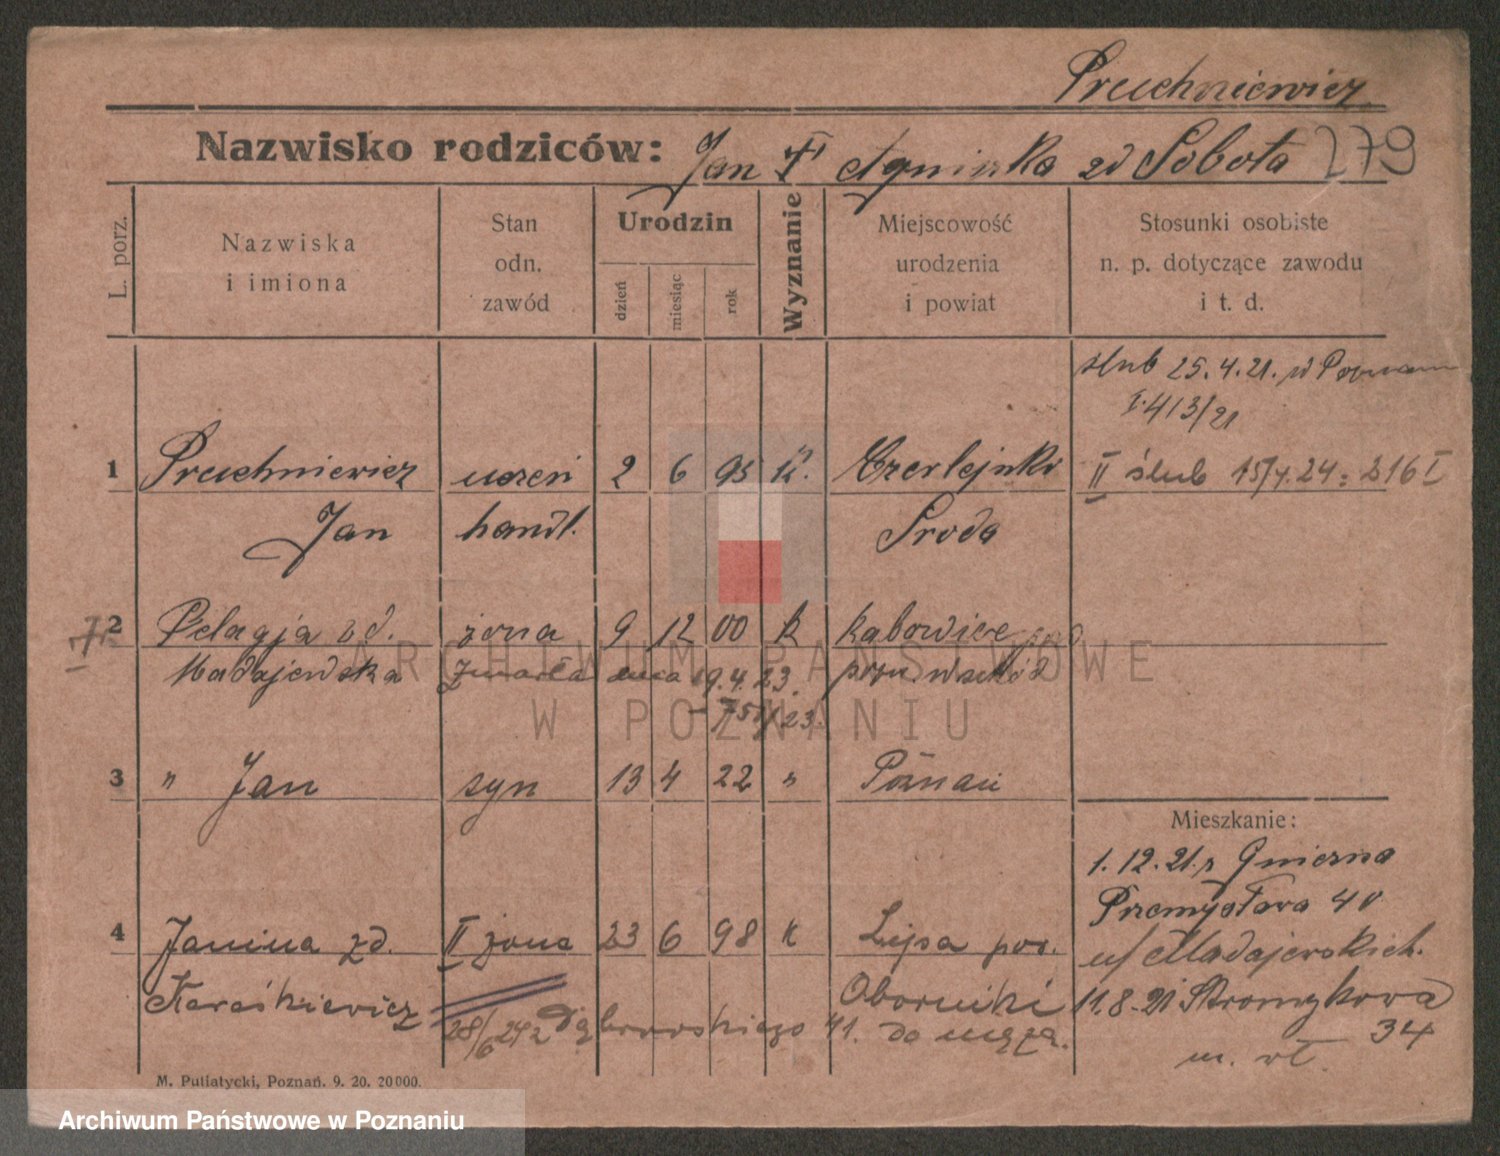 Pruchniewicz
Nazwisko rodziców: Jan Agnieszka zd Sobota 279
L. porz.
Nazwiska
i imiona
Stan
odn.
zawód
Urodzin
dzień
miesiąc
rok
Wyznanie
Miejscowość
urodzenia
i powiat
Stosunki osobiste
n. p. dotyczące zawodu
i t. d.
ślub 25.4.21. w Poznaniu
I.413/21
1 Pruchniewicz uczeń 2 6 95 k. Czerlejnko II ślub 15/4.24 = 216 I
Jan handl. Środa
2 Pelagja zd. żona 9 12 00 k
Madajewska zmarła dnia 19.4.23.
3 " Jan syn 13 4 22 " Poznań
Mieszkanie:
1.12.21.r Gniezno
Przemysława 40
u/Madajewskich.
4 Janina zd. II żona 23 6 98 k
Oborniki 11.8.21 Stromykowa
34
28/6 24 z Dąbrowskiego 41. do męża.
M. Putiatycki, Poznań. 9. 20. 20000.
ARCHIWUM PAŃSTWOWE
W POZNANIU
Archiwum Państwowe w Poznaniu